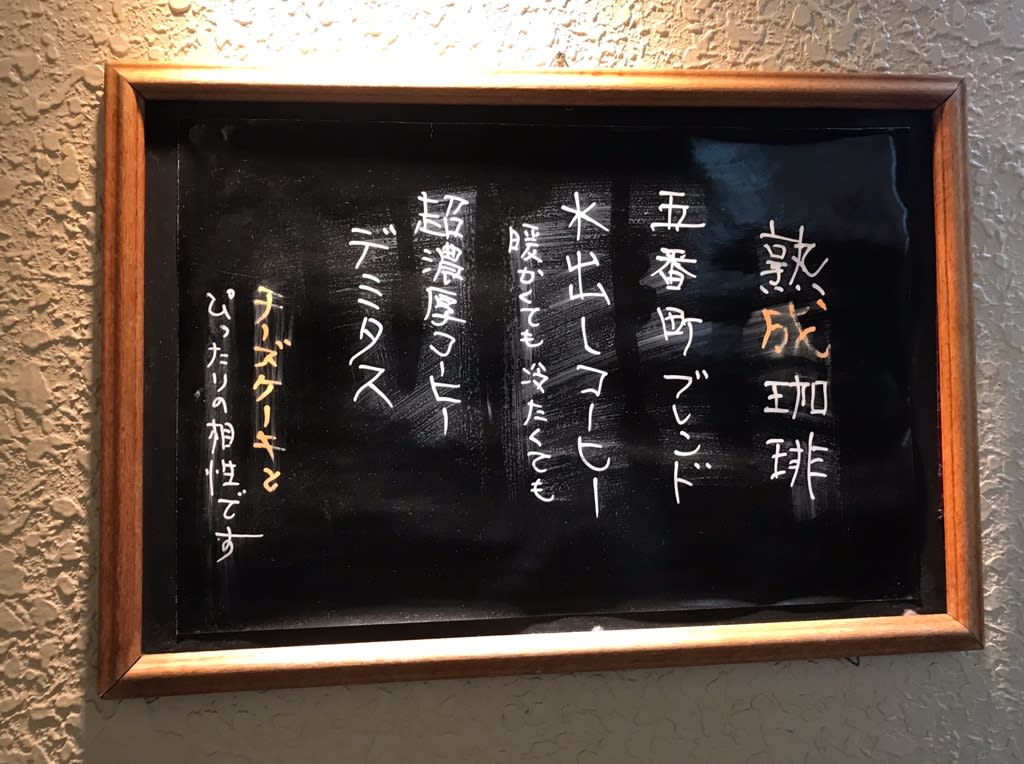 熟成珈琲
五番町ブレンド
水出しコーヒー
暖かくても 冷たくても
超濃厚コーヒー
デミタス
チーズケーキと
ぴったりの相性です